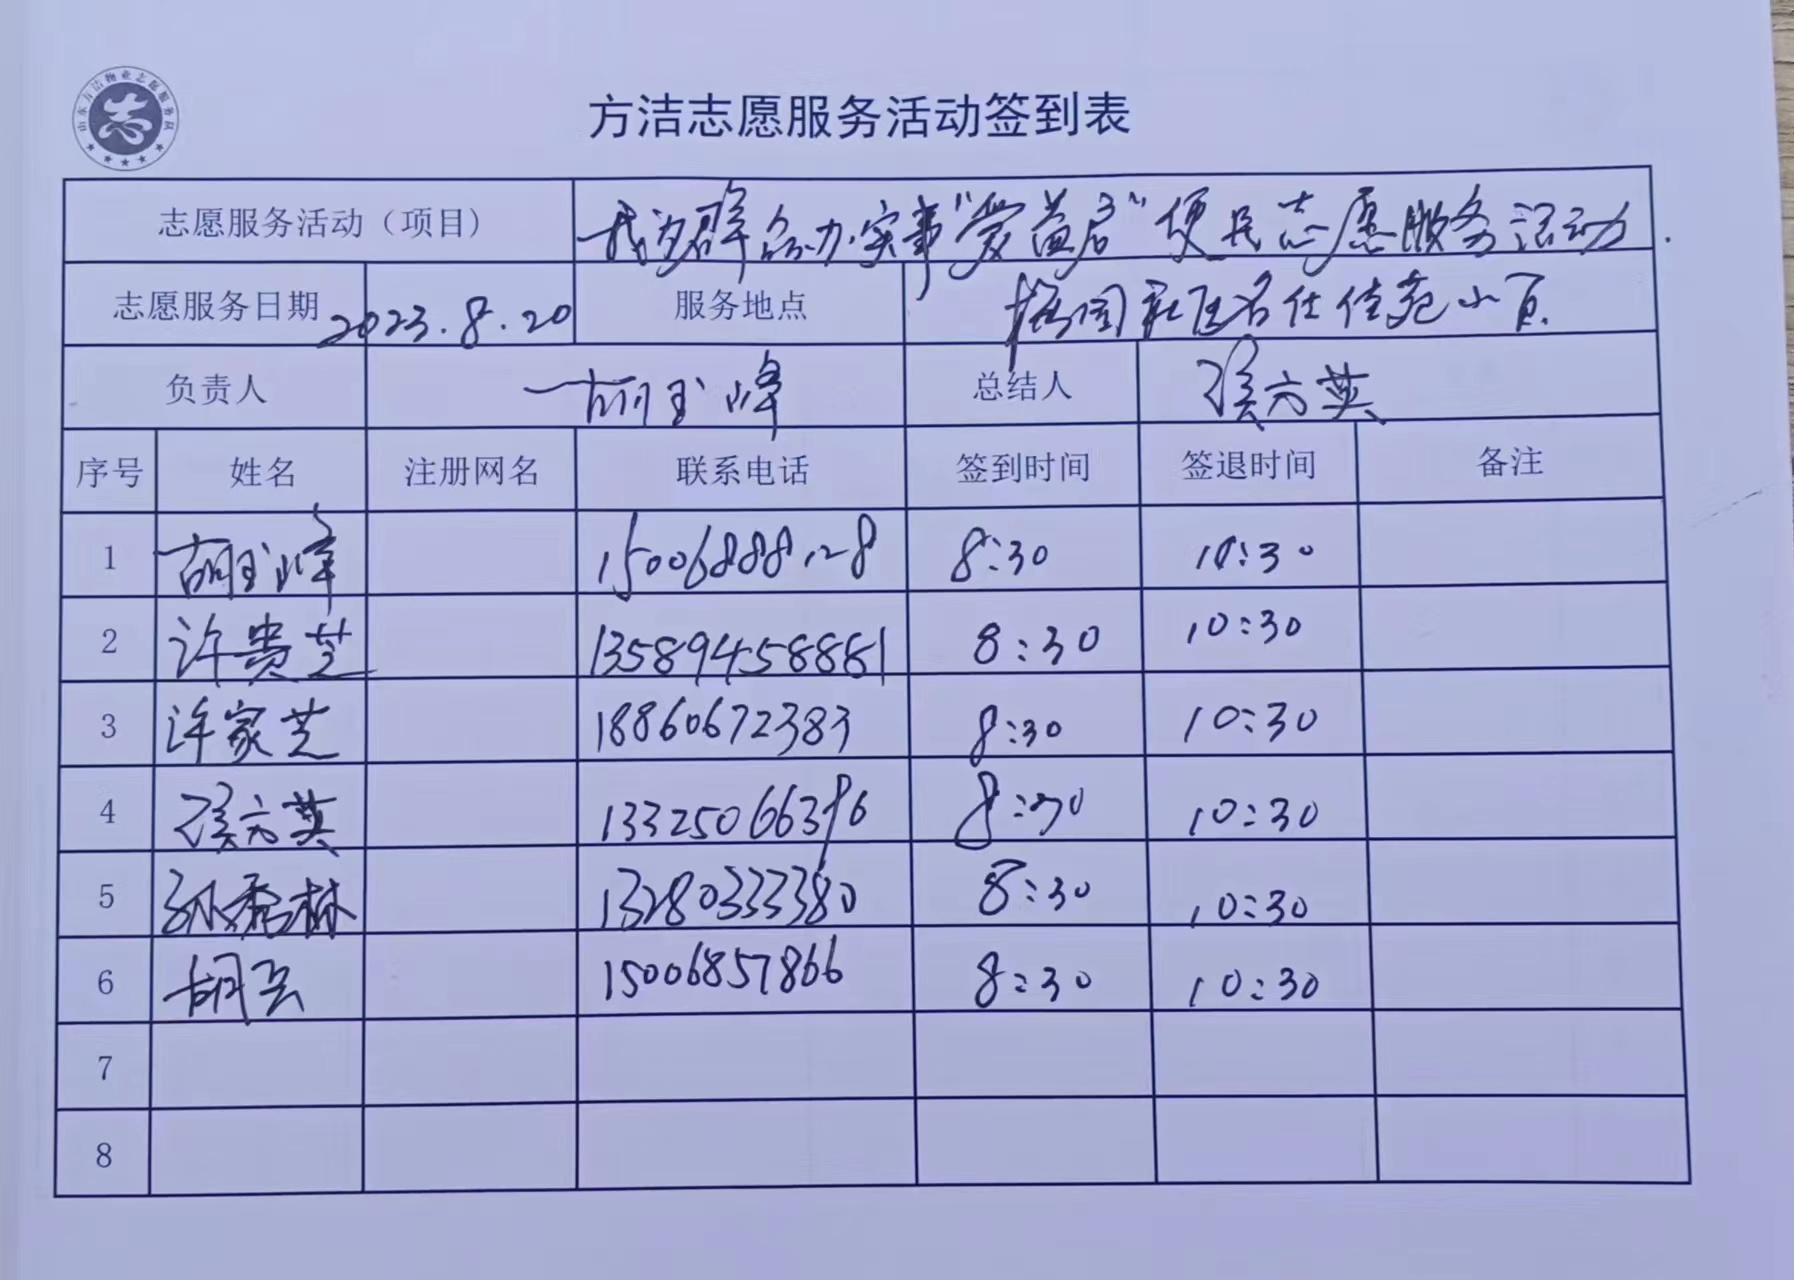 山东方洁物业志愿服务队
志
方洁志愿服务活动签到表
志愿服务活动（项目） 我为群众办实事“爱益居”便民志愿服务活动.
志愿服务日期 2023.8.20 服务地点 社区名仕佳苑小区
负责人 胡玉峰 总结人 侯六英
序号 姓名 注册网名 联系电话 签到时间 签退时间 备注
1 胡玉峰 15006888128 8:30 10:30
2 许贵芝 13589458881 8:30 10:30
3 许家芝 18860672383 8:30 10:30
4 侯六英 13325066396 8:30 10:30
5 孙秀林 13280333380 8:30 10:30
6 胡云 15006857866 8:30 10:30
7
8